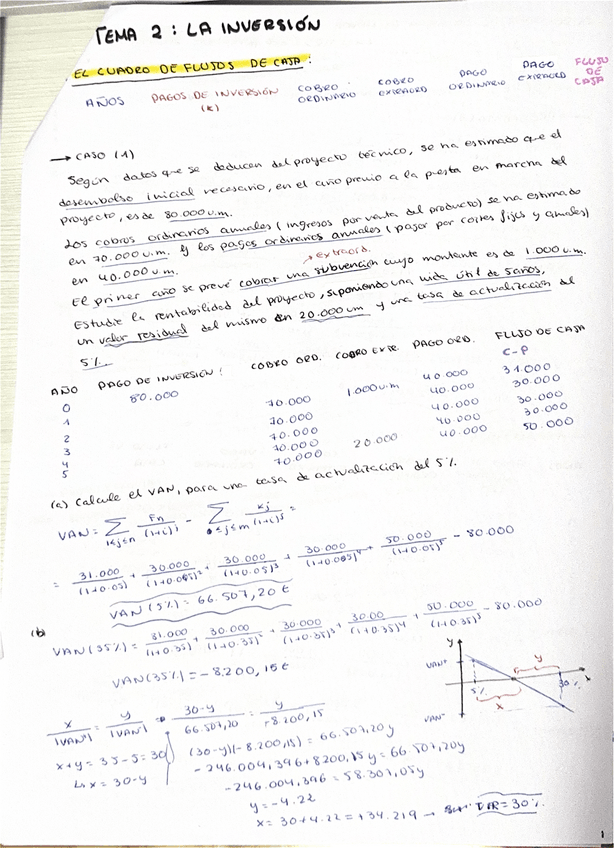 TEMA 2: LA INVERSIÓN
EL CUADRO DE FLUJOS DE CAJA:
AÑOS PAGOS DE INVERSIÓN (K) COBRO ORDINARIO COBRO EXTRAORD PAGO ORDINARIO PAGO EXTRAORD FLUJO DE CAJA
→ CASO (1)
Según datos que se deducen del proyecto técnico, se ha estimado que el
desembolso inicial necesario, en el año previo a la puesta en marcha del
proyecto, es de 80.000 u.m.
Los cobros ordinarios anuales (ingresos por venta del producto) se ha estimado
en 70.000 u.m. y los pagos ordinarios anuales (pagos por costes fijos y anuales)
en 40.000 u.m.
→ extraord.
El primer año se prevé cobrar una subvención cuyo montante es de 1.000 u.m.
Estudie la rentabilidad del proyecto, suponiendo una vida útil de 5 años,
un valor residual del mismo en 20.000 um y una tasa de actualización del
5%.
AÑO PAGO DE INVERSIÓN: COBRO ORD. COBRO EXTR. PAGO ORD. FLUJO DE CAJA
C-P
0 80.000
1 70.000 1.000 u.m 40.000 31.000
2 70.000 40.000 30.000
3 70.000 40.000 30.000
4 70.000 40.000 30.000
5 70.000 20.000 40.000 50.000
(a) Calcule el VAN, para una tasa de actualización del 5%.
VAN = ∑ 1≤j≤n Fn/(1+i)^j - ∑ 0≤j≤m Kj/(1+i)^j =
= 31.000/(1+0.05) + 30.000/(1+0.05)² + 30.000/(1+0.05)³ + 30.000/(1+0.05)⁴ + 50.000/(1+0.05)⁵ - 80.000
VAN (5%) = 66.507,20 €
(b)
VAN (35%) = 31.000/(1+0.35) + 30.000/(1+0.35)² + 30.000/(1+0.35)³ + 30.00/(1+0.35)⁴ + 50.000/(1+0.35)⁵ - 80.000
VAN (35%) = -8.200,15 €
y
VAN⁺
y
5%
30
x
x
VAN⁻
x/|VAN⁺| = y/|VAN⁻| → 30-y/66.507,20 = y/-8.200,15
x+y = 35-5 = 30
↳ x = 30-y
(30-y)(-8.200,15) = 66.507,20y
-246.004,396 + 8200,15y = 66.507,20y
-246.004,396 = 58.307,05y
y = -4.22
x = 30+4.22 = +34.219 → TIR = 30%
1